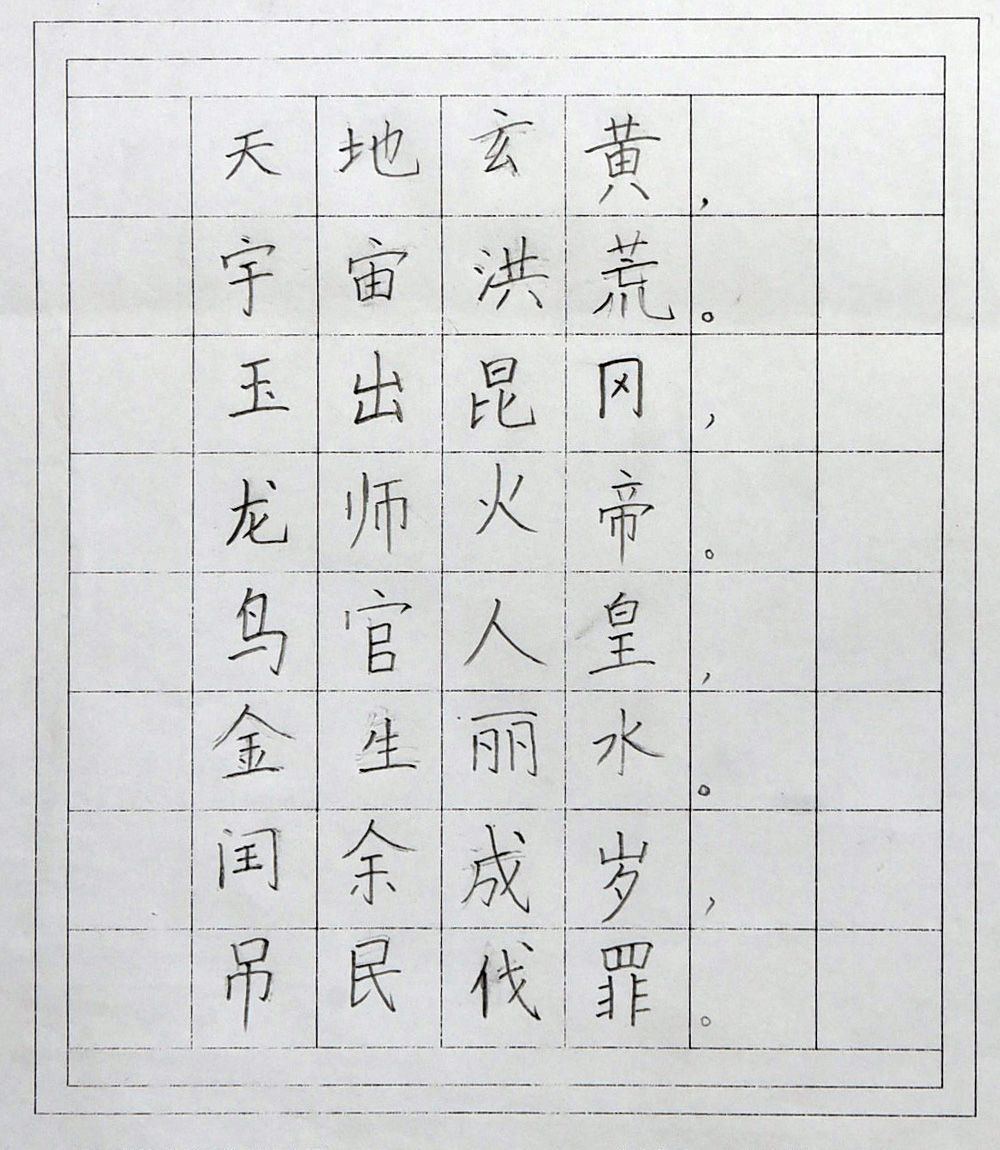 天地玄黄，
宇宙洪荒。
玉出昆冈，
龙师火帝。
鸟官人皇，
金生丽水。
闰余成岁，
吊民伐罪。